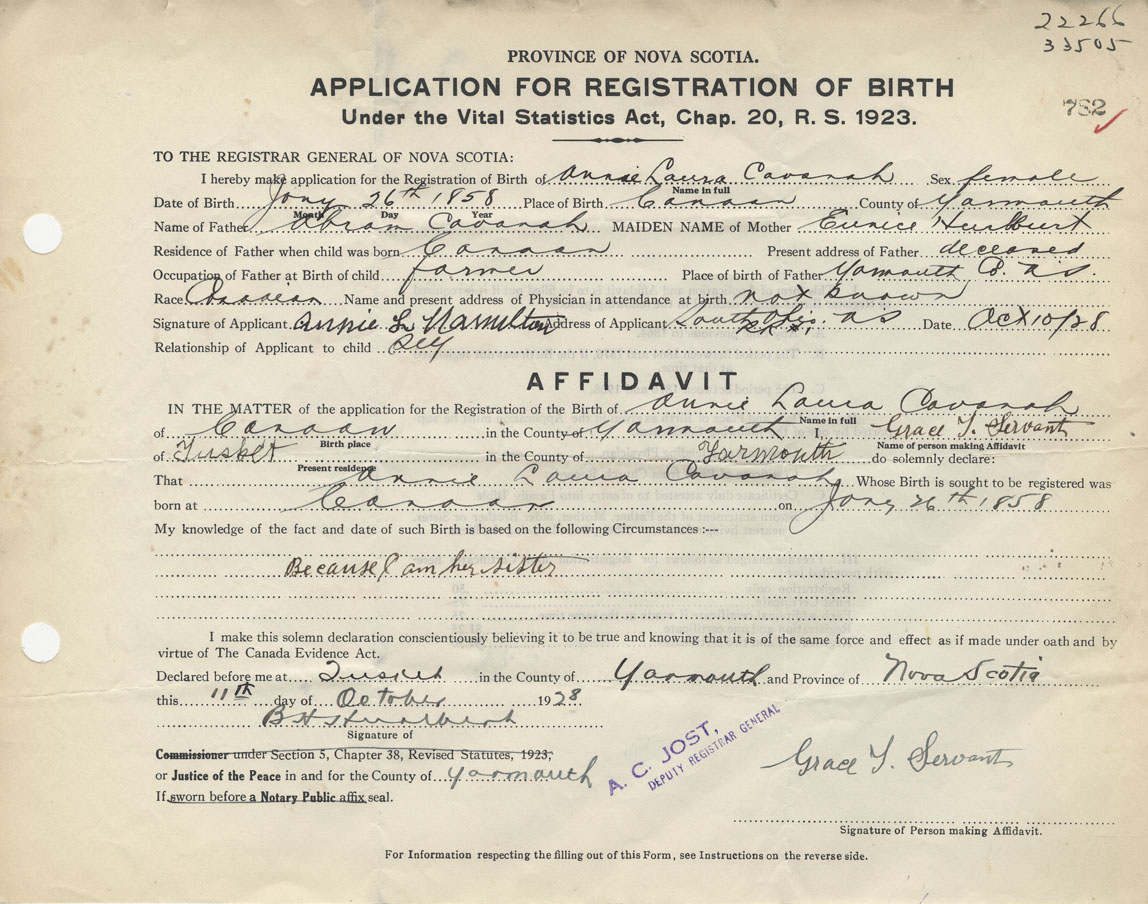 22266
33505
PROVINCE OF NOVA SCOTIA.
APPLICATION FOR REGISTRATION OF BIRTH
782
Under the Vital Statistics Act, Chap. 20, R. S. 1923.
TO THE REGISTRAR GENERAL OF NOVA SCOTIA:
I hereby make application for the Registration of Birth of Annie Laura Cavanah Sex female
Name in full
Date of Birth Jany 26th 1858 Place of Birth Canaan County of Yarmouth
Month Day Year
Name of Father Abram Cavanah MAIDEN NAME of Mother Eunice Hurlburt
Residence of Father when child was born Canaan Present address of Father deceased
Occupation of Father at Birth of child farmer Place of birth of Father Yarmouth Co. NS.
Race Canadian Name and present address of Physician in attendance at birth not known
Signature of Applicant Annie L. Hamilton Address of Applicant South NS Date Oct 10/28
Relationship of Applicant to child self
AFFIDAVIT
IN THE MATTER of the application for the Registration of the Birth of Annie Laura Cavanah
Name in full
of Canaan in the County of Yarmouth I, Grace T. Servant
Birth place Name of person making Affidavit
of Tusket in the County of Yarmouth do solemnly declare:
Present residence
That Annie Laura Cavanah Whose Birth is sought to be registered was
born at Canaan on Jany 26th 1858
My knowledge of the fact and date of such Birth is based on the following Circumstances :---
Because I am her sister
I make this solemn declaration conscientiously believing it to be true and knowing that it is of the same force and effect as if made under oath and by
virtue of The Canada Evidence Act.
Declared before me at Tusket in the County of Yarmouth and Province of Nova Scotia
this 11th day of October 1928.
Signature of
Commissioner under Section 5, Chapter 38, Revised Statutes, 1923,
or Justice of the Peace in and for the County of Yarmouth
If sworn before a Notary Public affix seal.
A. C. JOST,
DEPUTY REGISTRAR GENERAL
Grace T. Servant
Signature of Person making Affidavit.
For Information respecting the filling out of this Form, see Instructions on the reverse side.